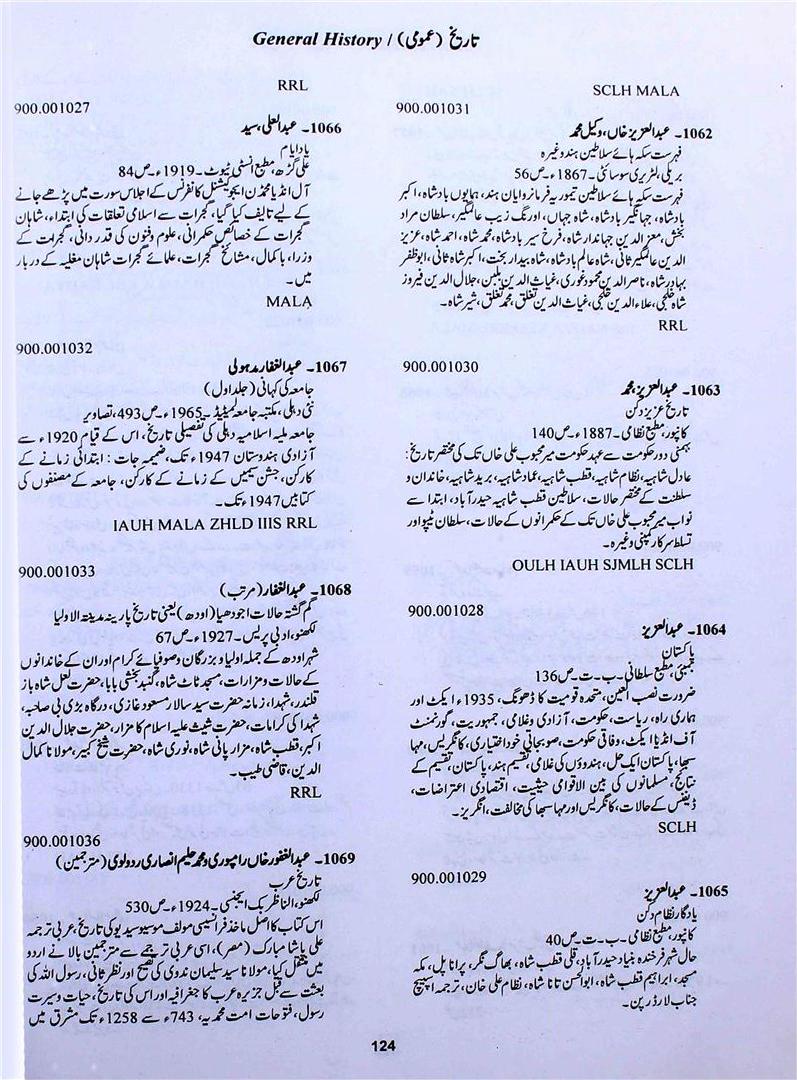 تاریخ (عمومی) / General History
SCLH MALA
900.001031
1062۔ عبدالعزیز خاں، وکیل محمد
فہرست سکہ ہائے سلاطین ہند وغیرہ
بریلی، لٹریری سوسائٹی۔ 1867ء۔ ص56
فہرست سکہ ہائے سلاطین تیموریہ فرمانروایان ہند، ہمایوں بادشاہ، اکبر
بادشاہ، جہانگیر بادشاہ، شاہ جہاں، اورنگ زیب عالمگیر، سلطان مراد
بخش، معز الدین جہاندار شاہ، فرخ سیر بادشاہ، محمد شاہ، احمد شاہ، عزیز
الدین عالمگیر ثانی، شاہ عالم بادشاہ، شاہ بیدار بخت، اکبر شاہ ثانی، ابوظفر
بہادر شاہ، ناصر الدین محمود غوری، غیاث الدین بلبن، جلال الدین فیروز
شاہ خلجی، علاء الدین خلجی، غیاث الدین تغلق، محمد تغلق، شیر شاہ۔
RRL
900.001030
1063۔ عبدالعزیز، محمد
تاریخ عزیز دکن
کانپور، مطبع نظامی۔ 1887ء۔ ص140
بہمنی دور حکومت سے عہد حکومت میر محبوب علی خاں تک کی مختصر تاریخ:
عادل شاہیہ، نظام شاہیہ، قطب شاہیہ، عماد شاہیہ، برید شاہیہ، خاندان و
سلطنت کے مختصر حالات، سلاطین قطب شاہیہ حیدرآباد، ابتدا سے
نواب میر محبوب علی خاں تک کے حکمرانوں کے حالات، سلطان ٹیپو اور
تسلط سرکار کمپنی وغیرہ۔
OULH IAUH SJMLH SCLH
900.001028
1064۔ عبدالعزیز
پاکستان
بمبئی، مطبع سلطانی۔ ب۔ت۔ ص136
ضرورت نصب العین، متحدہ قومیت کا ڈھونگ، 1935ء ایکٹ اور
ہماری راہ، ریاست، حکومت، آزادی و غلامی، جمہوریت، گورنمنٹ
آف انڈیا ایکٹ، وفاقی حکومت، صوبجاتی خود اختیاری، کانگریس، مہا
سبھا، پاکستان ایک حل، ہندوؤں کی غلامی، تقسیم ہند، پاکستان، تقسیم کے
نتائج، مسلمانوں کی بین الاقوامی حیثیت، اقتصادی اعتراضات،
ڈیفنس کے حالات، کانگریس اور مہا سبھا کی مخالفت، انگریز۔
SCLH
900.001029
1065۔ عبدالعزیز
یادگار نظام دکن
کانپور، مطبع نظامی۔ ب۔ت۔ ص40
حال شہر فرخندہ بنیاد حیدرآباد، قلی قطب شاہ، بھاگ نگر، پرانا پل، مکہ
مسجد، ابراہیم قطب شاہ، ابوالحسن تانا شاہ، نظام علی خان، ترجمہ اسپیچ
جناب لارڈ رپن۔
RRL
900.001027
1066۔ عبدالعلی، سید
یاد ایام
علی گڑھ، مطبع انسٹی ٹیوٹ۔ 1919ء۔ ص84
آل انڈیا محمڈن ایجوکیشنل کانفرنس کے اجلاس سورت میں پڑھے جانے
کے لیے تالیف کیا گیا، گجرات سے اسلامی تعلقات کی ابتداء، شاہان
گجرات کے خصائص حکمرانی، علوم و فنون کی قدر دانی، گجرات کے
وزرا، باکمال، مشائخ گجرات، علمائے گجرات شاہان مغلیہ کے دربار
میں۔
MALA
900.001032
1067۔ عبدالغفار مدہولی
جامعہ کی کہانی (جلد اول)
نئی دہلی، مکتبہ جامعہ لمیٹیڈ۔ 1965ء۔ ص493، تصاویر
جامعہ ملیہ اسلامیہ دہلی کی تفصیلی تاریخ، اس کے قیام 1920ء سے
آزادی ہندوستان 1947ء تک، ضمیمہ جات: ابتدائی زمانے کے
کارکن، جشن سیمیں کے زمانے کے کارکن، جامعہ کے مصنفوں کی
کتابیں 1947ء تک۔
IAUH MALA ZHLD IIIS RRL
900.001033
1068۔ عبدالغفار (مرتب)
گم گشتہ حالات اجودھیا (اودھ) یعنی تاریخ پارینہ مدینۃ الاولیا
لکھنؤ، ادبی پریس۔ 1927ء۔ ص67
شہر اودھ کے جملہ اولیا و بزرگان و صوفیائے کرام اور ان کے خاندانوں
کے حالات و مزارات، مسجد ٹاٹ شاہ، گنبد بخشی بابا، حضرت لعل شاہ باز
قلندر، شہدا، زمانہ حضرت سید سالار مسعود غازی، درگاہ بڑی بی صاحبہ،
شہدا کی کرامات، حضرت شیث علیہ اسلام کا مزار، حضرت جلال الدین
اکبر، قطب شاہ، مزار پانی شاہ، نوری شاہ، حضرت شیخ کبیر، مولانا کمال
الدین، قاضی طیب۔
RRL
900.001036
1069۔ عبدالغفور خاں رامپوری و محمد حلیم انصاری ردولوی (مترجمین)
تاریخ عرب
لکھنؤ، الناظر بک ایجنسی۔ 1924ء۔ ص530
اس کتاب کا اصل ماخذ فرانسیسی مولف موسیو سیدیو کی تاریخ، عربی ترجمہ
علی پاشا مبارک (مصر)، اسی عربی ترجمے سے مترجمین بالا نے اردو
میں منتقل کیا، مولانا سید سلیمان ندوی کی تصحیح اور نظر ثانی، رسول اللہ کی
بعثت سے قبل جزیرہ عرب کا جغرافیہ اور اس کی تاریخ، حیات و سیرت
رسول، فتوحات امت محمدیہ، 743ء سے 1258ء تک مشرق میں
124